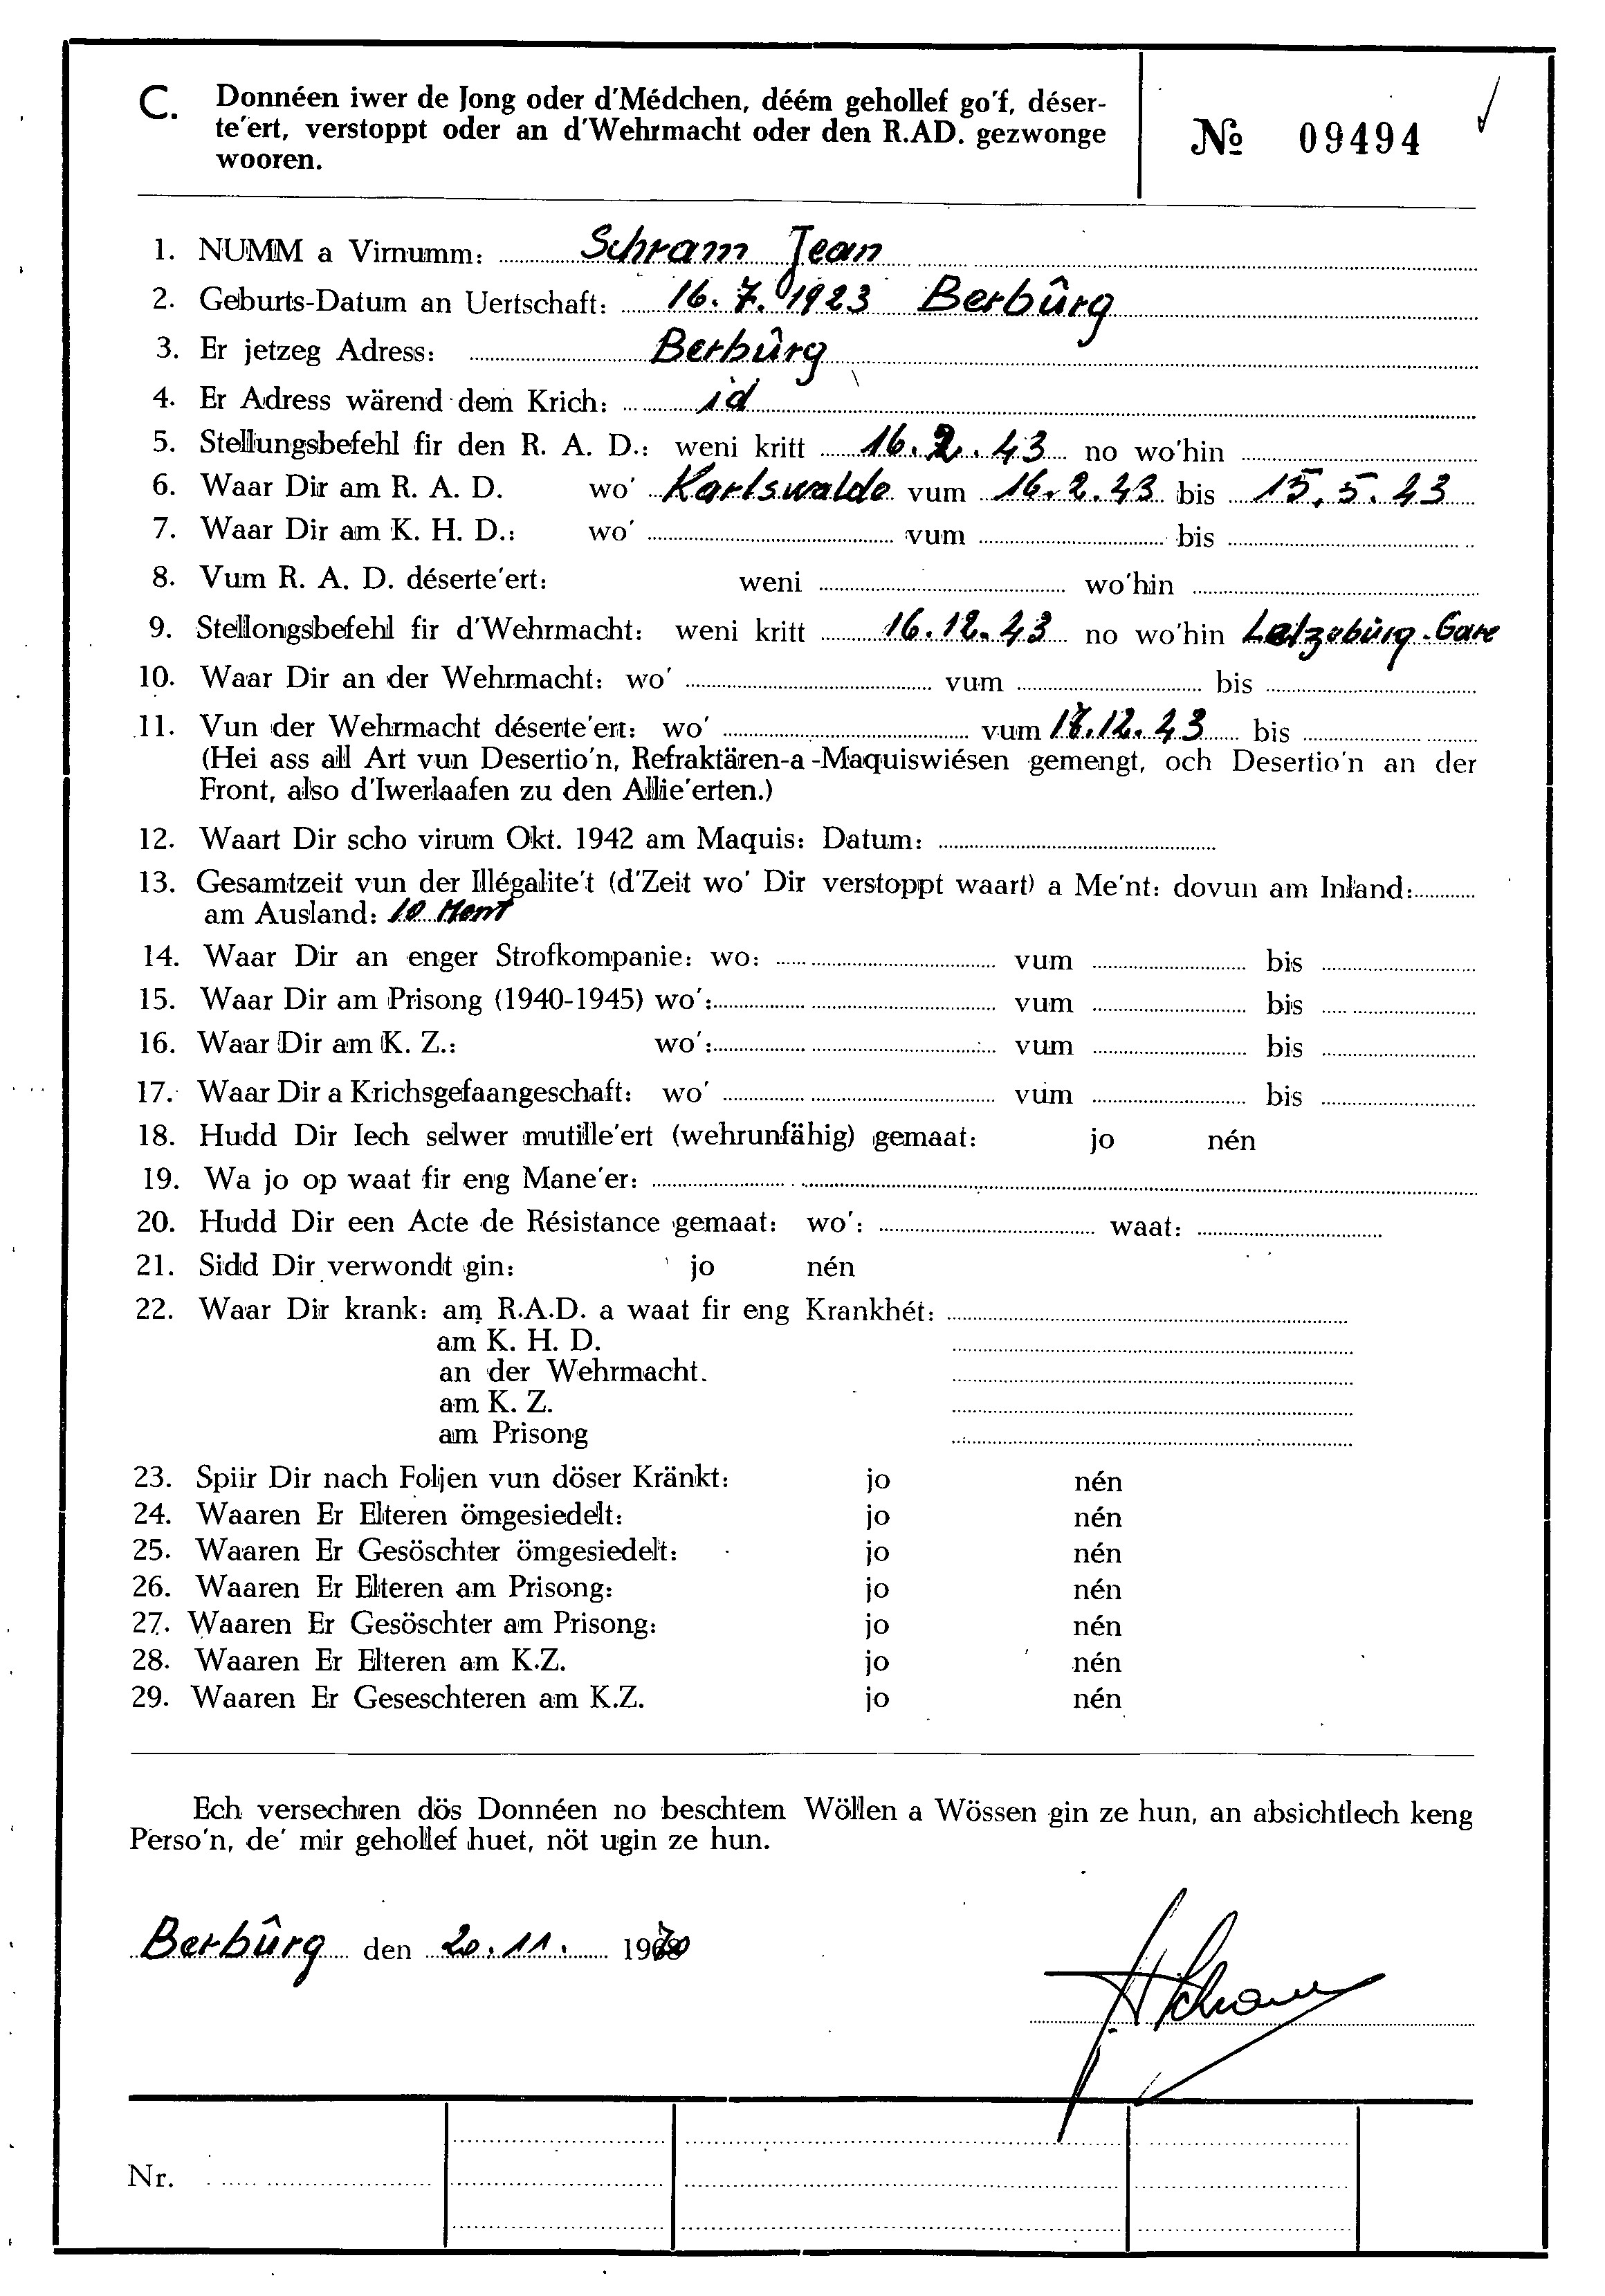 C. Donnéen iwer de Jong oder d'Médchen, déém gehollef go'f, déser-
te'ert, verstoppt oder an d'Wehrmacht oder den R.AD. gezwonge
wooren.
№ 09494
1. NUMM a Virnumm: Schram Jean
2. Geburts-Datum an Uertschaft: 16. 7. 1923 Berbûrg
3. Er jetzeg Adress: Berbûrg
4. Er Adress wärend dem Krich: id
5. Stellungsbefehl fir den R. A. D.: weni kritt 16. 2. 43 no wo'hin
6. Waar Dir am R. A. D. wo' Karlswalde vum 16. 2. 43 bis 15. 5. 43
7. Waar Dir am K. H. D.: wo' vum bis
8. Vum R. A. D. déserte'ert: weni wo'hin
9. Stellongsbefehl fir d'Wehrmacht: weni kritt 16. 12. 43 no wo'hin Letzebûrg-Gare
10. Waar Dir an der Wehrmacht: wo' vum bis
11. Vun der Wehrmacht déserte'ert: wo' vum 17. 12. 43 bis
(Hei ass all Art vun Desertio'n, Refraktären-a-Maquiswiésen gemengt, och Desertio'n an der
Front, also d'Iwerlaafen zu den Allie'erten.)
12. Waart Dir scho virum Okt. 1942 am Maquis: Datum:
13. Gesamtzeit vun der Illégalite't (d'Zeit wo' Dir verstoppt waart) a Me'nt: dovun am Inland:
am Ausland: 10 Ment
14. Waar Dir an enger Strofkompanie: wo: vum bis
15. Waar Dir am Prisong (1940-1945) wo': vum bis
16. Waar Dir am K. Z.: wo': vum bis
17. Waar Dir a Krichsgefaangeschaft: wo' vum bis
18. Hudd Dir Iech selwer mutille'ert (wehrunfähig) gemaat: jo nén
19. Wa jo op waat fir eng Mane'er:
20. Hudd Dir een Acte de Résistance gemaat: wo': waat:
21. Sidd Dir verwondt gin: jo nén
22. Waar Dir krank: am R.A.D. a waat fir eng Krankhét:
am K. H. D.
an der Wehrmacht.
am K. Z.
am Prisong
23. Spiir Dir nach Foljen vun döser Kränkt: jo nén
24. Waaren Er Elteren ömgesiedelt: jo nén
25. Waaren Er Gesöschter ömgesiedelt: jo nén
26. Waaren Er Elteren am Prisong: jo nén
27. Waaren Er Gesöschter am Prisong: jo nén
28. Waaren Er Elteren am K.Z. jo nén
29. Waaren Er Geseschteren am K.Z. jo nén
Ech versechren dös Donnéen no beschtem Wöllen a Wössen gin ze hun, an absichtlech keng
Perso'n, de' mir gehollef huet, nöt ugin ze hun.
Berbûrg den 20. 11. 1970
J. Schram
Nr.